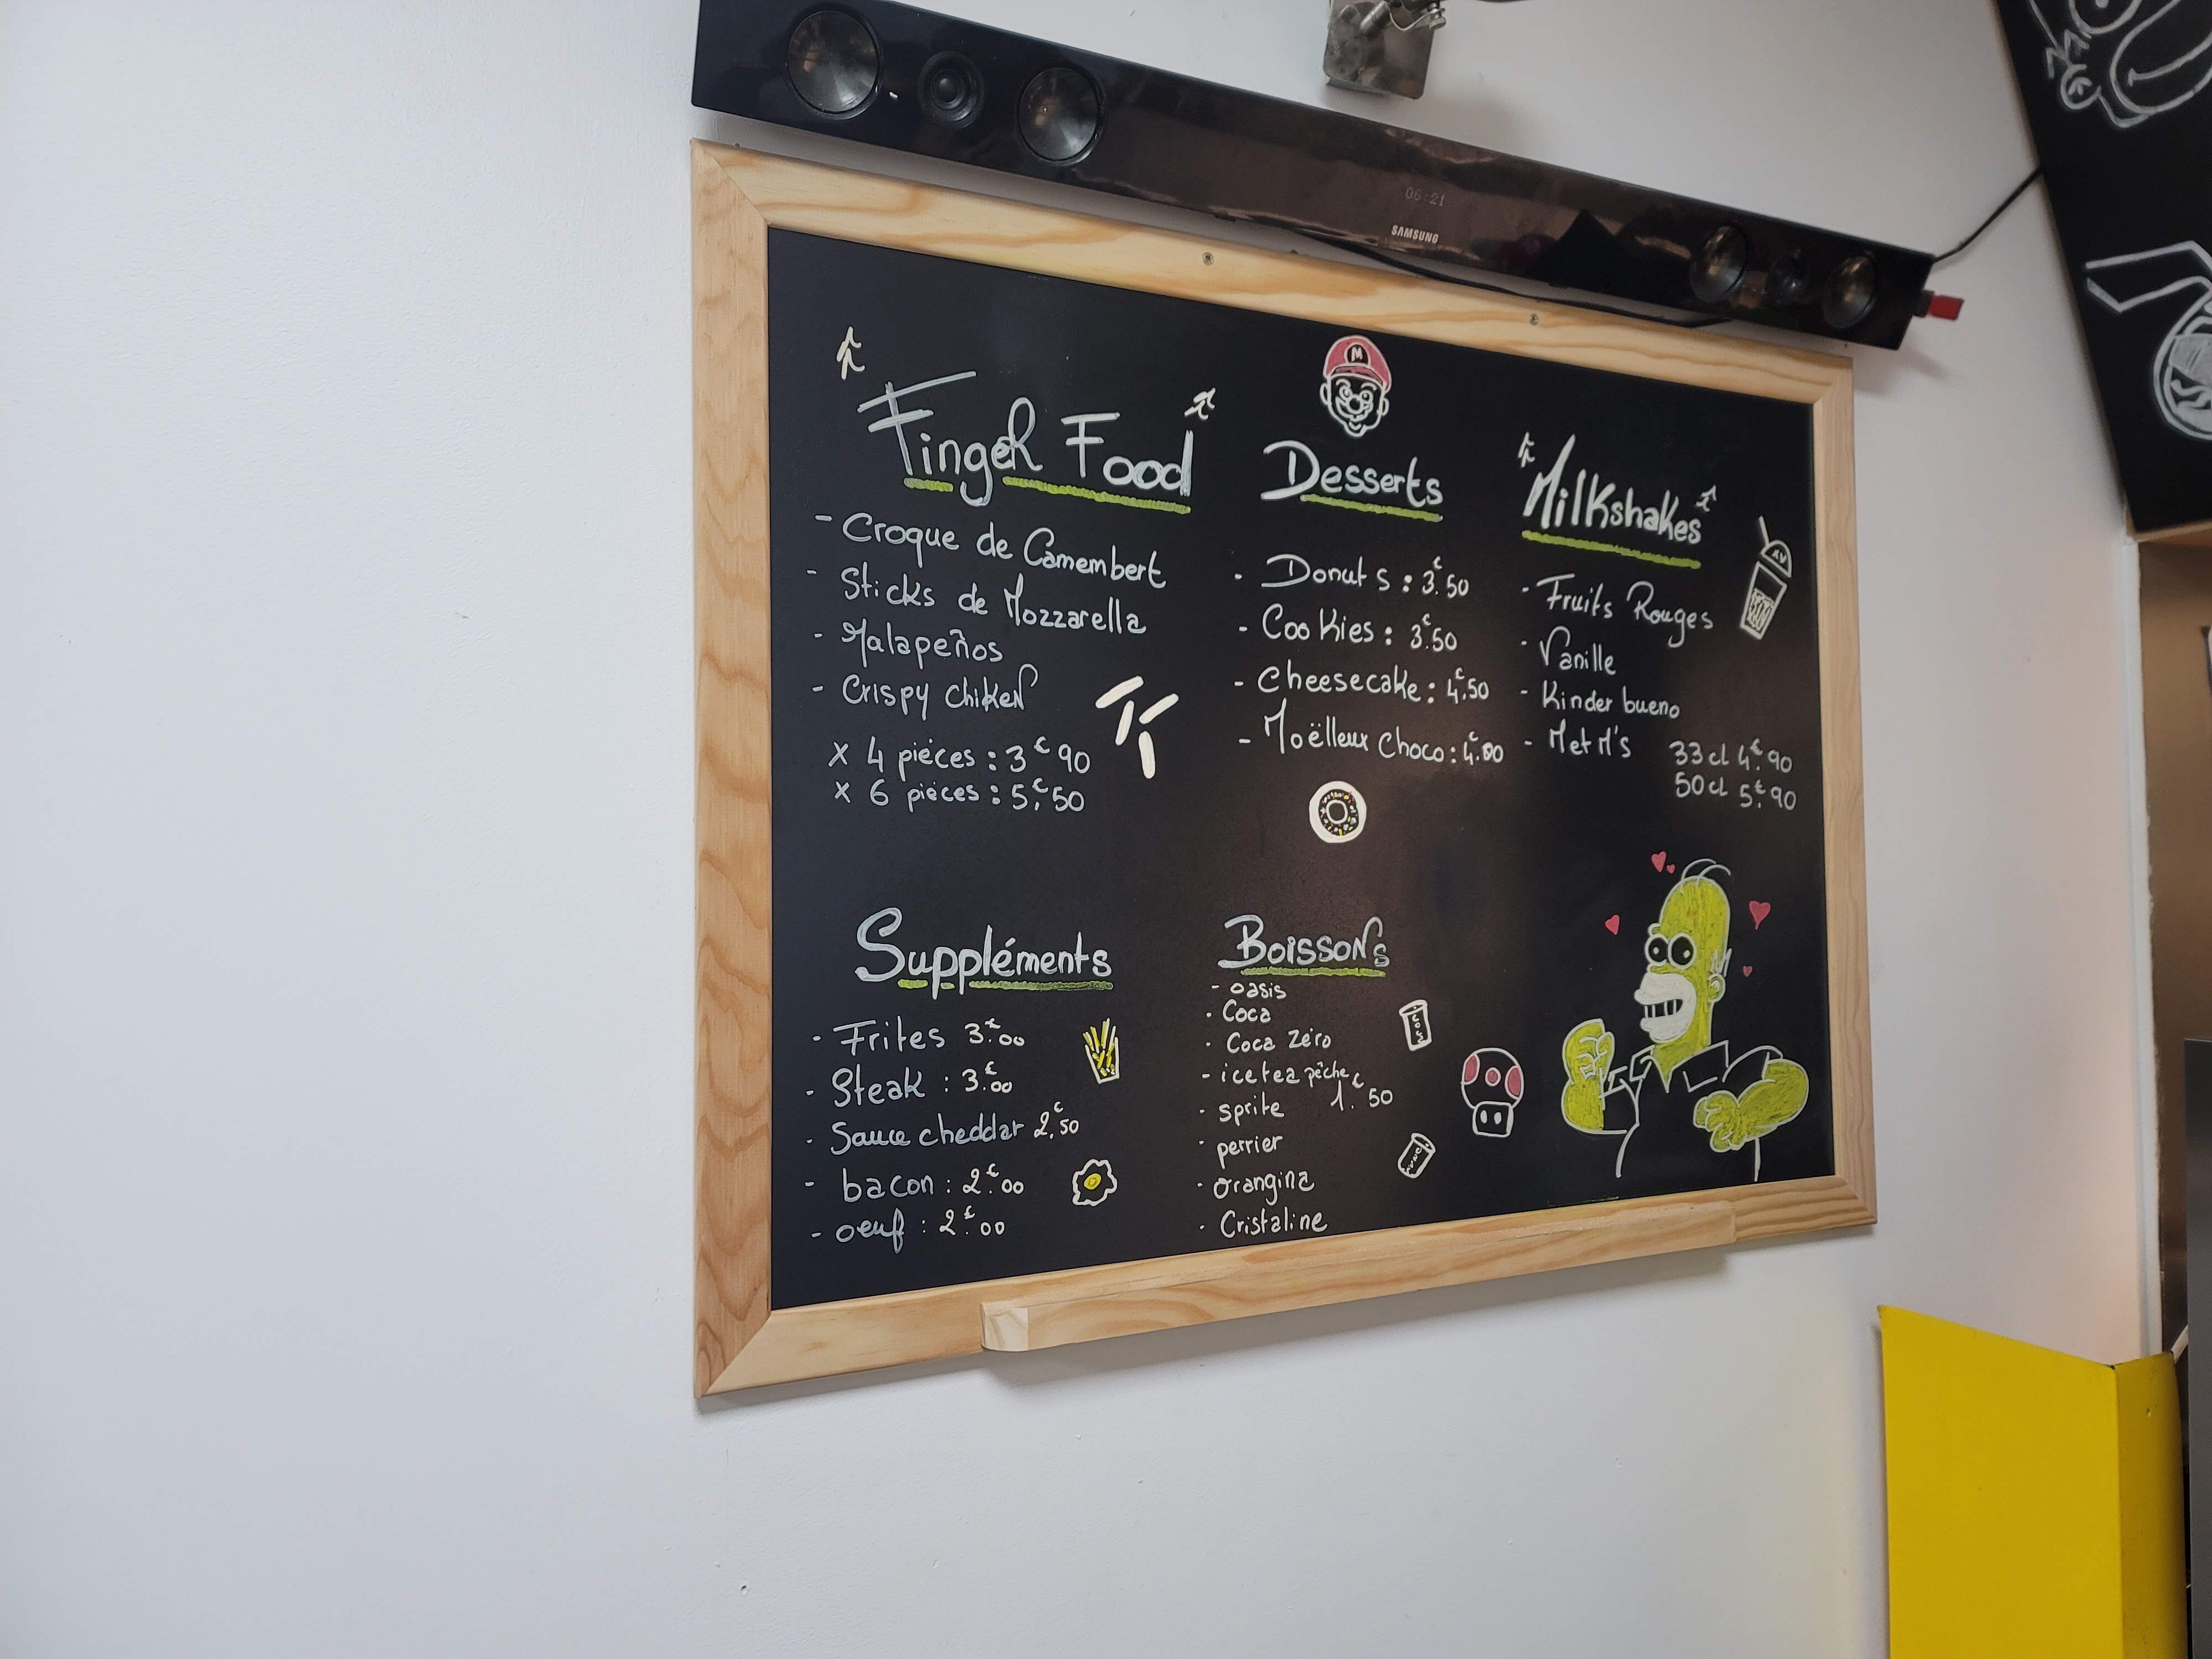 06:21
SAMSUNG
Finger Food
- Croque de Camembert
- Sticks de Mozzarella
- Jalapeños
- Crispy chiken
x 4 pièces : 3€90
x 6 pièces : 5,€50
M
Desserts
- Donuts : 3.€50
- Cookies : 3.€50
- Cheesecake : 4.€50
- Moëlleux Choco : 4.€00
Milkshakes
- Fruits Rouges
- Vanille
- Kinder bueno
- M et M's
33cl 4.€90
50cl 5.€90
Suppléments
- Frites 3.€00
- Steak : 3.€00
- Sauce cheddar 2.€50
- bacon : 2.€00
- oeuf : 2.€00
Boissons
- oasis
- Coca
- Coca Zéro
- icetea pêche
- sprite 1.€50
- perrier
- orangina
- Cristaline